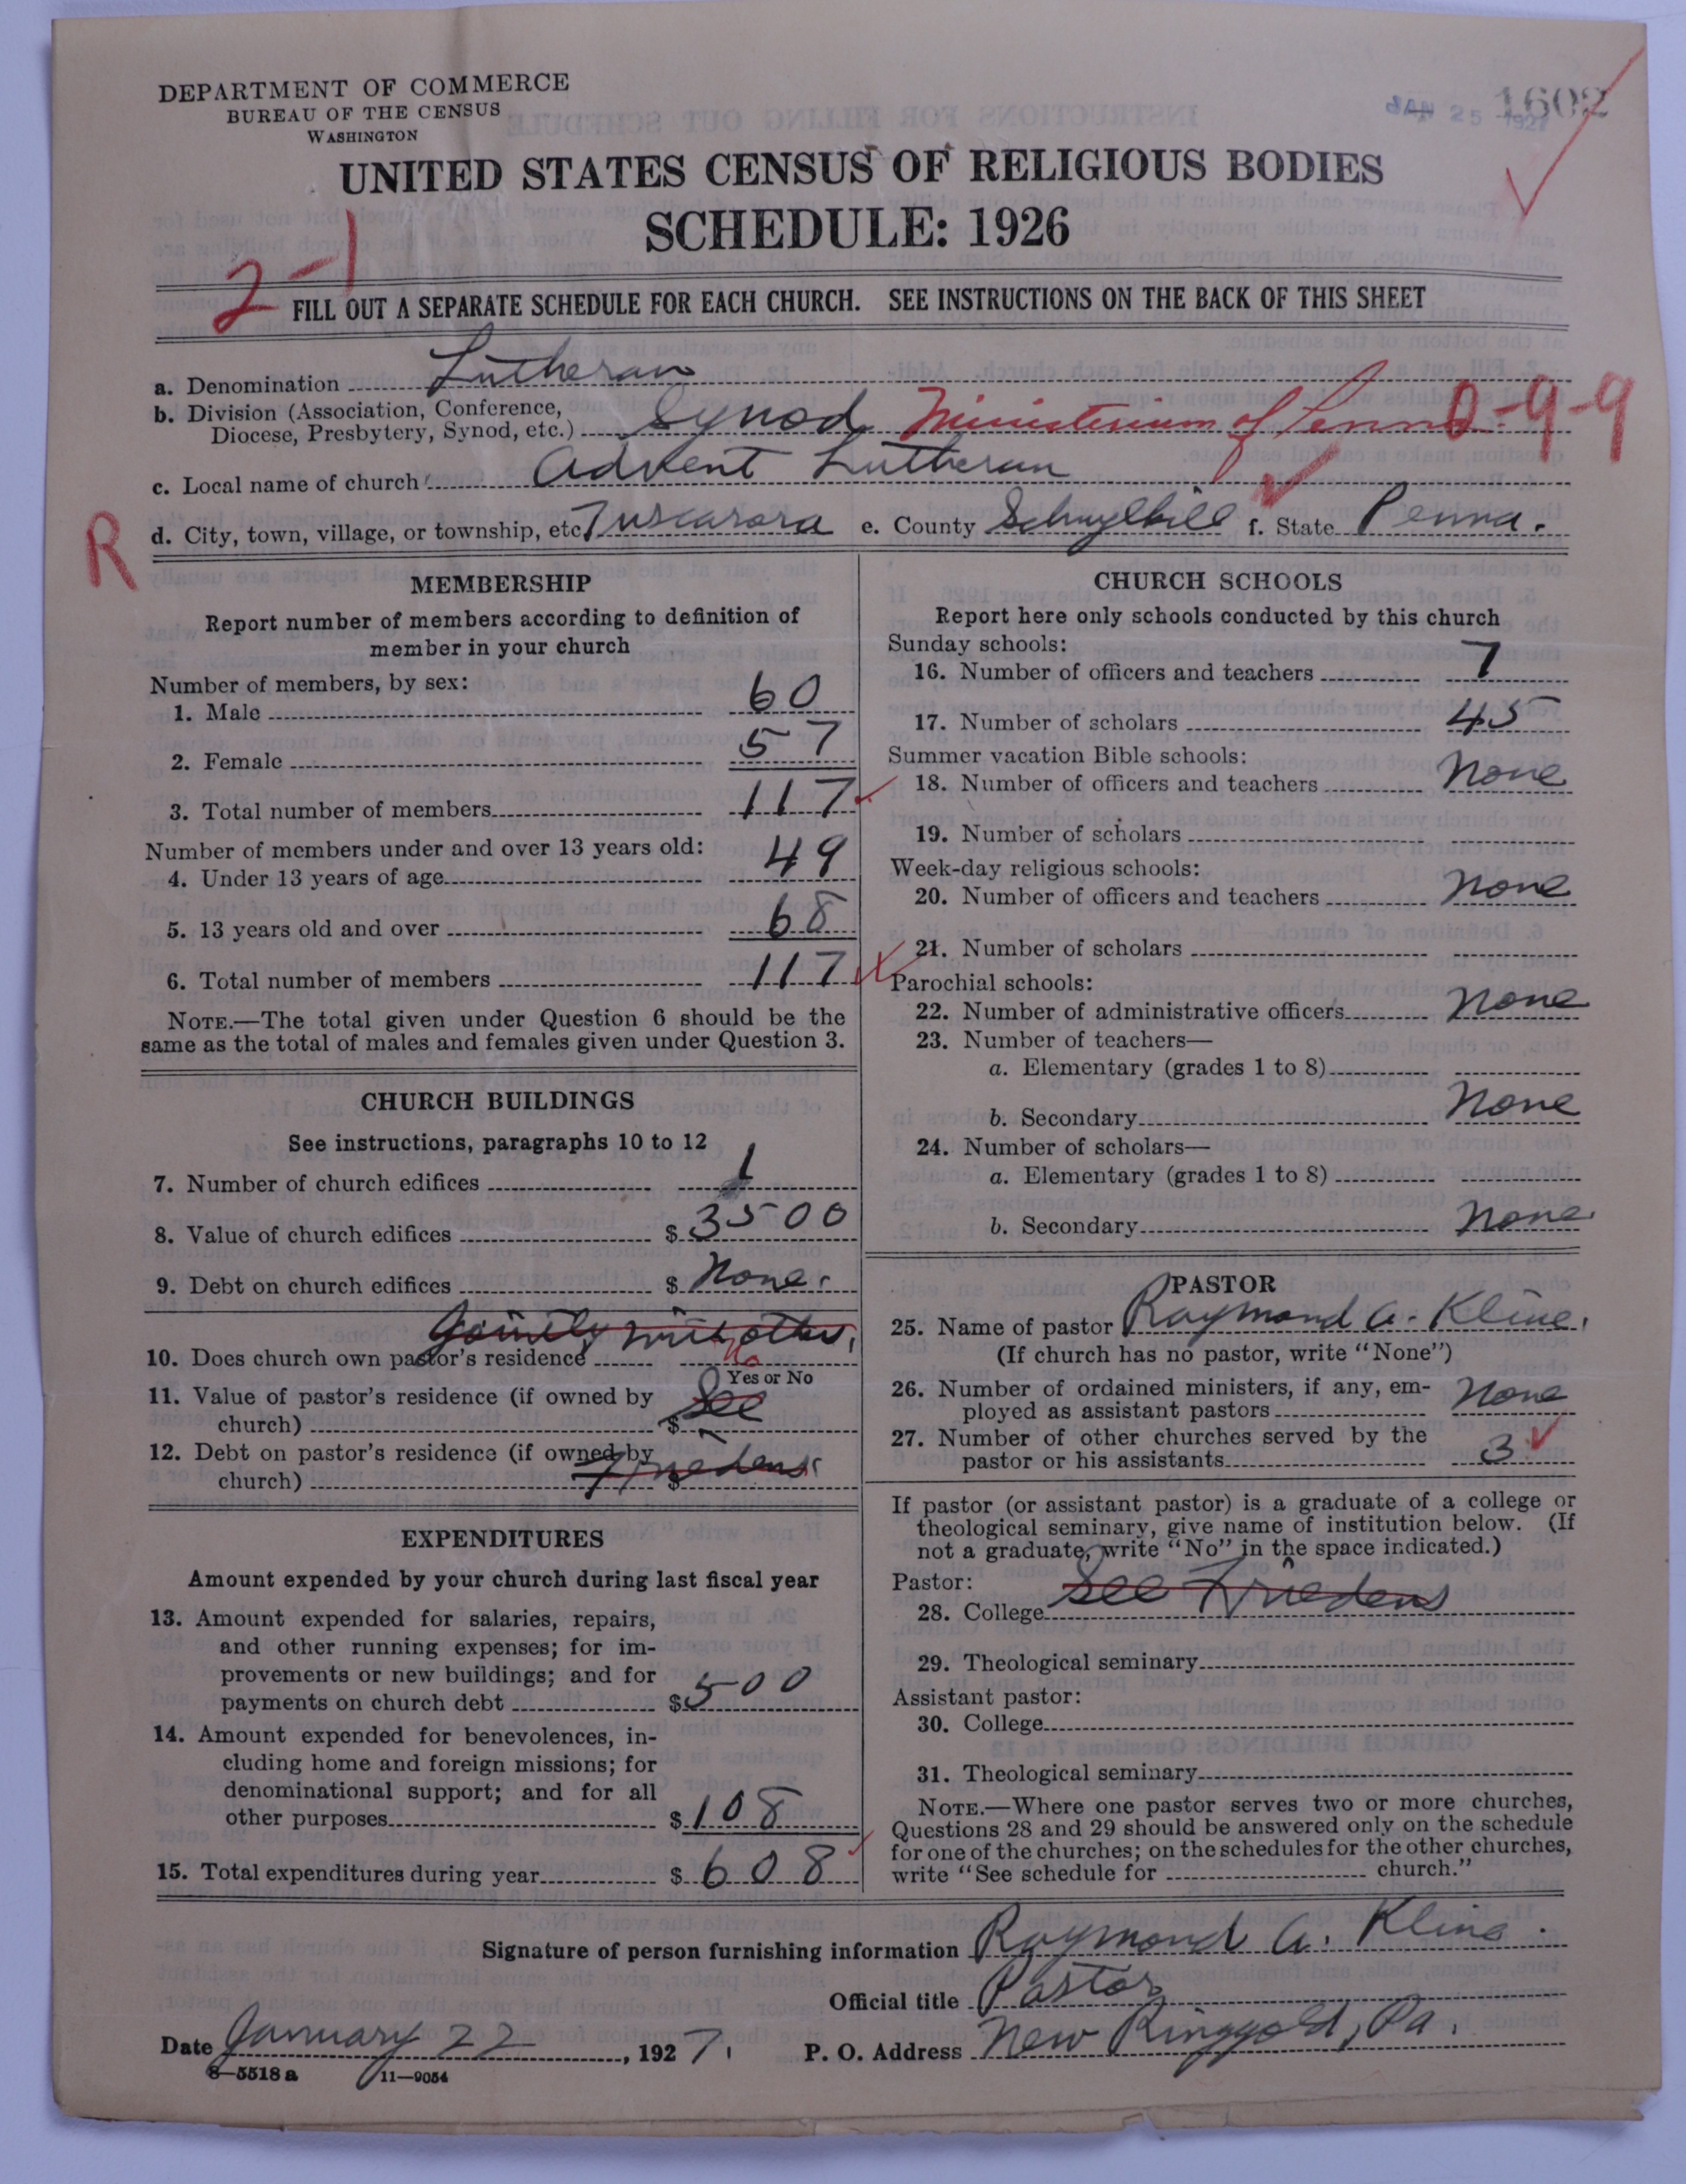 DEPARTMENT OF COMMERCE
BUREAU OF THE CENSUS
WASHINGTON
JAN 25 1927 1602
UNITED STATES CENSUS OF RELIGIOUS BODIES
SCHEDULE: 1926
2-1
FILL OUT A SEPARATE SCHEDULE FOR EACH CHURCH. SEE INSTRUCTIONS ON THE BACK OF THIS SHEET
a. Denomination Lutheran
b. Division (Association, Conference,
Diocese, Presbytery, Synod, etc.) Synod Ministerium of Penna 0-9-9
c. Local name of church Advent Lutheran
R
d. City, town, village, or township, etc. Tuscarora e. County Schuylkill f. State Penna.
MEMBERSHIP
Report number of members according to definition of
member in your church
Number of members, by sex:
1. Male 60
2. Female 57
3. Total number of members 117
Number of members under and over 13 years old:
4. Under 13 years of age 49
5. 13 years old and over 68
6. Total number of members 117
NOTE.—The total given under Question 6 should be the
same as the total of males and females given under Question 3.
CHURCH BUILDINGS
See instructions, paragraphs 10 to 12
7. Number of church edifices 1
8. Value of church edifices $ 3500
9. Debt on church edifices $ None.
Jointly with other.
10. Does church own pastor's residence No
Yes or No
11. Value of pastor's residence (if owned by
church) $ See
12. Debt on pastor's residence (if owned by
church) $ Friedens
EXPENDITURES
Amount expended by your church during last fiscal year
13. Amount expended for salaries, repairs,
and other running expenses; for im-
provements or new buildings; and for
payments on church debt $ 500
14. Amount expended for benevolences, in-
cluding home and foreign missions; for
denominational support; and for all
other purposes $ 108
15. Total expenditures during year $ 608
CHURCH SCHOOLS
Report here only schools conducted by this church
Sunday schools:
16. Number of officers and teachers 7
17. Number of scholars 45
Summer vacation Bible schools:
18. Number of officers and teachers None
19. Number of scholars
Week-day religious schools:
20. Number of officers and teachers None
21. Number of scholars
Parochial schools:
22. Number of administrative officers None
23. Number of teachers—
a. Elementary (grades 1 to 8)
b. Secondary None
24. Number of scholars—
a. Elementary (grades 1 to 8)
b. Secondary None
PASTOR
25. Name of pastor Raymond A. Kline.
(If church has no pastor, write "None")
26. Number of ordained ministers, if any, em-
ployed as assistant pastors None
27. Number of other churches served by the
pastor or his assistants 3
If pastor (or assistant pastor) is a graduate of a college or
theological seminary, give name of institution below. (If
not a graduate, write "No" in the space indicated.)
Pastor:
28. College See Friedens
29. Theological seminary
Assistant pastor:
30. College
31. Theological seminary
NOTE.—Where one pastor serves two or more churches,
Questions 28 and 29 should be answered only on the schedule
for one of the churches; on the schedules for the other churches,
write "See schedule for church."
Signature of person furnishing information Raymond A. Kline.
Official title Pastor
Date January 22, 1927. P. O. Address New Ringgold, Pa.
8—5518 a 11—9054